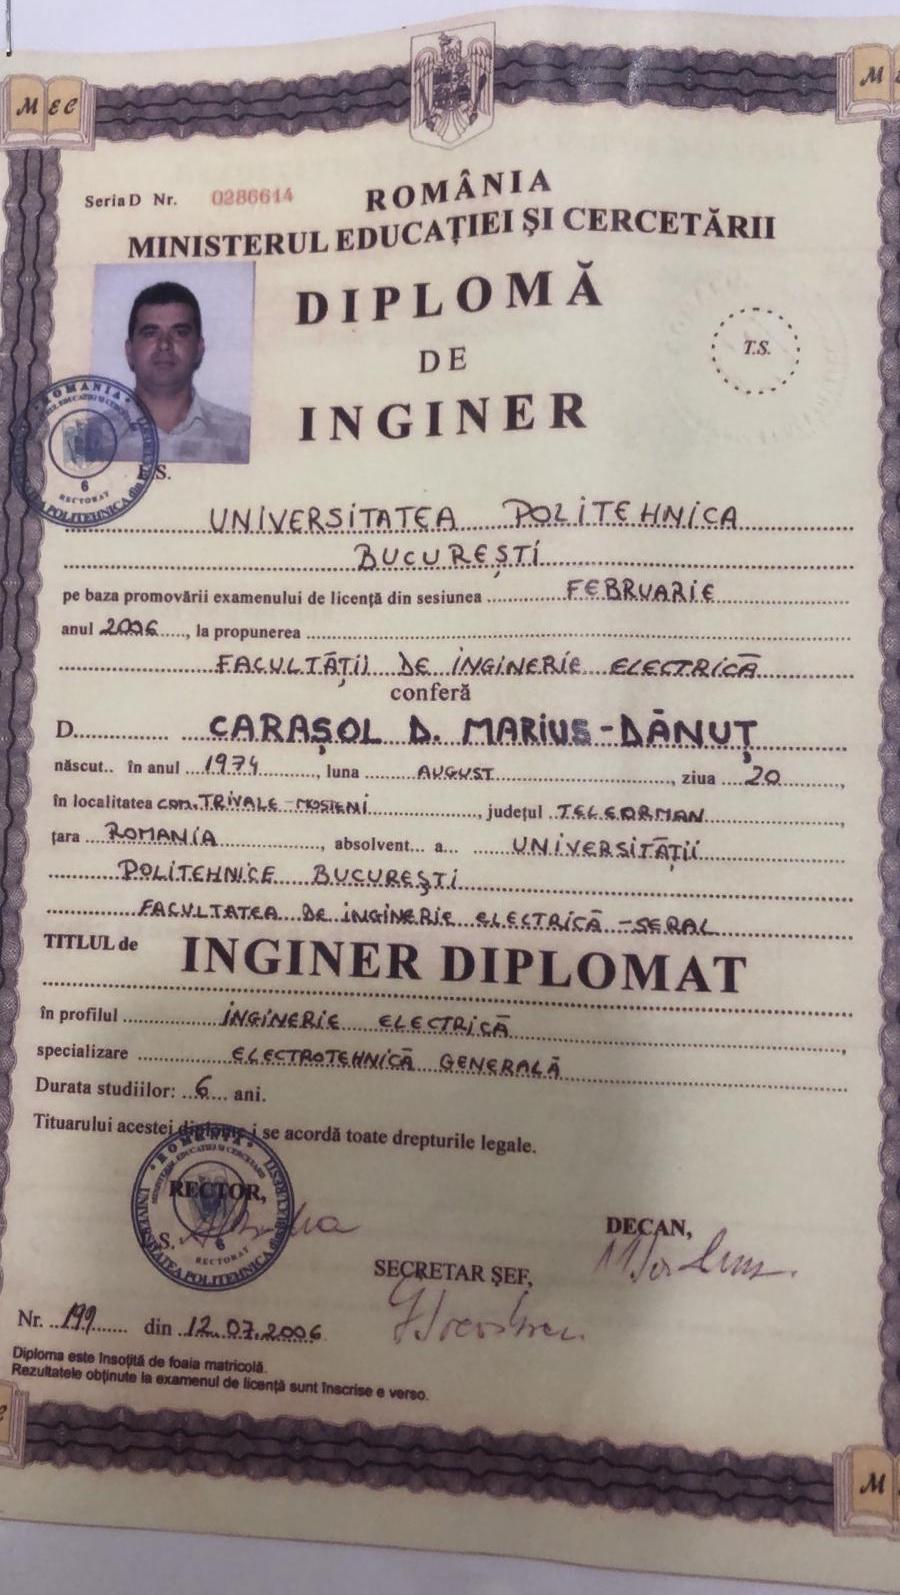 MEC
M
Seria D Nr. 0286614
ROMÂNIA
MINISTERUL EDUCAȚIEI ȘI CERCETĂRII
DIPLOMĂ
DE
INGINER
T.S.
ROMANIA
6
RECTORAT
UNIVERSITATEA POLITEHNICA
BUCUREȘTI
pe baza promovării examenului de licență din sesiunea FEBRUARIE
anul 2006, la propunerea
FACULTĂȚII DE INGINERIE ELECTRICĂ
conferă
D. CARAȘOL D. MARIUS-DĂNUȚ
născut.. în anul 1974, luna AUGUST, ziua 20,
în localitatea com. TRIVALE-MOSTENI, județul TELEORMAN,
țara ROMANIA, absolvent... a... UNIVERSITĂȚII
POLITEHNICE BUCUREȘTI
FACULTATEA DE INGINERIE ELECTRICĂ - SERAL
TITLUL de INGINER DIPLOMAT
în profilul INGINERIE ELECTRICĂ,
specializare ELECTROTEHNICĂ GENERALĂ
Durata studiilor: 6 ani.
Tituarului acestei diplome i se acordă toate drepturile legale.
ROMANIA
UNIVERSITATEA POLITEHNICA din BUCURESTI
RECTOR,
6
RECTORAT
DECAN,
SECRETAR ȘEF,
Nr. 199 din 12.07.2006
Diploma este însoțită de foaia matricolă.
Rezultatele obținute la examenul de licență sunt înscrise e verso.
M